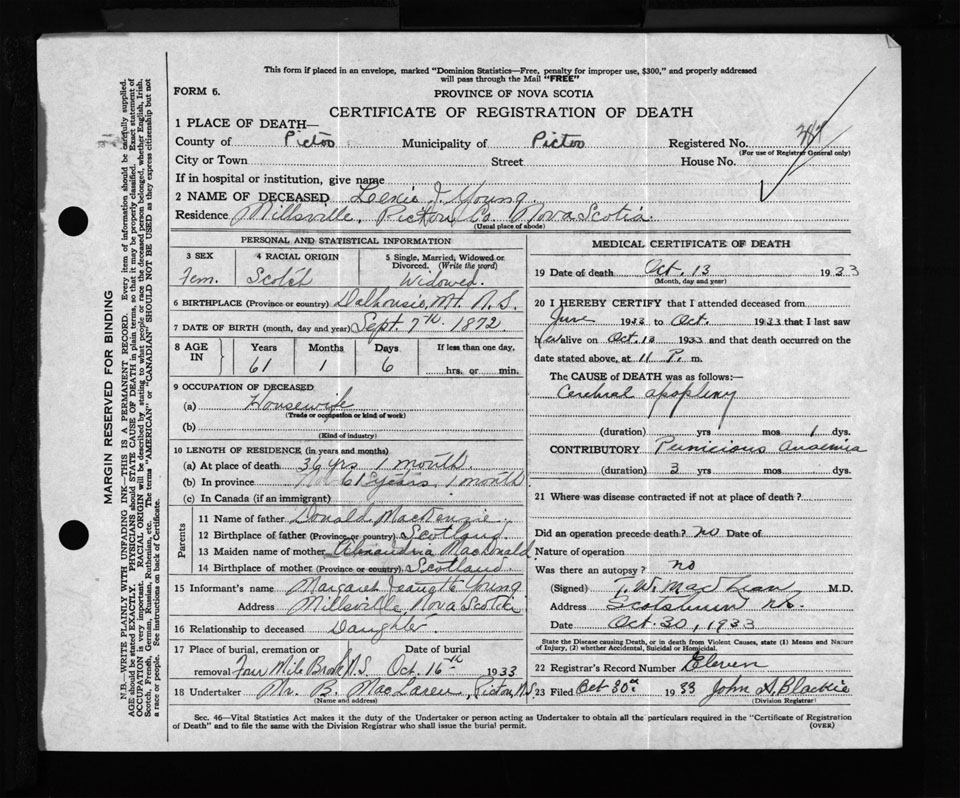 This form if placed in an envelope, marked "Dominion Statistics—Free, penalty for improper use, $300," and properly addressed
will pass through the Mail "FREE"
FORM 6.
PROVINCE OF NOVA SCOTIA
CERTIFICATE OF REGISTRATION OF DEATH
1 PLACE OF DEATH—
County of Pictou Municipality of Pictou Registered No.
(For use of Registrar General only)
City or Town Street House No.
If in hospital or institution, give name
2 NAME OF DECEASED Lexie J. Young
Residence Millsville, Pictou Co. Nova Scotia
(Usual place of abode)
PERSONAL AND STATISTICAL INFORMATION
3 SEX 4 RACIAL ORIGIN 5 Single, Married, Widowed or Divorced. (Write the word)
Fem. Scotch Widowed.
6 BIRTHPLACE (Province or country) Dalhousie, Mt. N.S.
7 DATE OF BIRTH (month, day and year) Sept. 7th. 1872.
8 AGE IN Years Months Days If less than one day.
61 1 6 hrs. or min.
9 OCCUPATION OF DECEASED
(a) Housewife
(Trade or occupation or kind of work)
(b)
(Kind of industry)
10 LENGTH OF RESIDENCE (in years and months)
(a) At place of death 36 yrs 1 month.
(b) In province 61 years, 1 month
(c) In Canada (if an immigrant)
Parents
11 Name of father Donald MacKenzie.
12 Birthplace of father (Province or country) Scotland.
13 Maiden name of mother Alexandria MacDonald
14 Birthplace of mother (Province or country) Scotland.
15 Informant's name Margaret Jeanette Young
Address Millsville, Nova Scotia
16 Relationship to deceased Daughter.
17 Place of burial, cremation or Date of burial
removal Four Mile Brook N.S. Oct. 16th 1933
18 Undertaker Mr. B. MacLaren, Pictou, N.S.
(Name and address)
MEDICAL CERTIFICATE OF DEATH
19 Date of death Oct. 13 1933
(Month, day and year)
20 I HEREBY CERTIFY that I attended deceased from
June 1933 to Oct. 1933 that I last saw
h er alive on Oct. 13 1933 and that death occurred on the
date stated above, at 11 P. m.
The CAUSE OF DEATH was as follows:—
Cerebral apoplexy
(duration) yrs mos 1 dys.
CONTRIBUTORY Pernicious anaemia
(duration) 3 yrs. mos dys.
21 Where was disease contracted if not at place of death?
Did an operation precede death? no Date of
Nature of operation
Was there an autopsy? no
(Signed) T. W. MacLean M.D.
Address Scotsburn N.S.
Date Oct 30, 1933
State the Disease causing Death, or in death from Violent Causes, state (1) Means and Nature
of Injury, (2) whether Accidental, Suicidal or Homicidal.
22 Registrar's Record Number Eleven
23 Filed Oct 30th 1933 John A. Blackie
(Division Registrar)
Sec. 46—Vital Statistics Act makes it the duty of the Undertaker or person acting as Undertaker to obtain all the particulars required in the "Certificate of Registration
of Death" and to file the same with the Division Registrar who shall issue the burial permit.
(OVER)
MARGIN RESERVED FOR BINDING
N.B.—WRITE PLAINLY WITH UNFADING INK—THIS IS A PERMANENT RECORD. Every item of information should be carefully supplied.
AGE should be stated EXACTLY. PHYSICIANS should STATE CAUSE OF DEATH in plain terms, so that it may be properly classified. Exact statement of
OCCUPATION is very important. RACIAL ORIGIN will be described by stating to what people or race the deceased person belonged, whether English, Irish,
Scotch, French, German, Russian, Ruthenian, etc. The terms "AMERICAN" or "CANADIAN" SHOULD NOT BE USED as they express citizenship but not
a race or people. See instructions on back of Certificate.